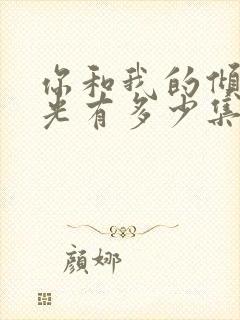 你和我的倾
光有多少集
颜娜